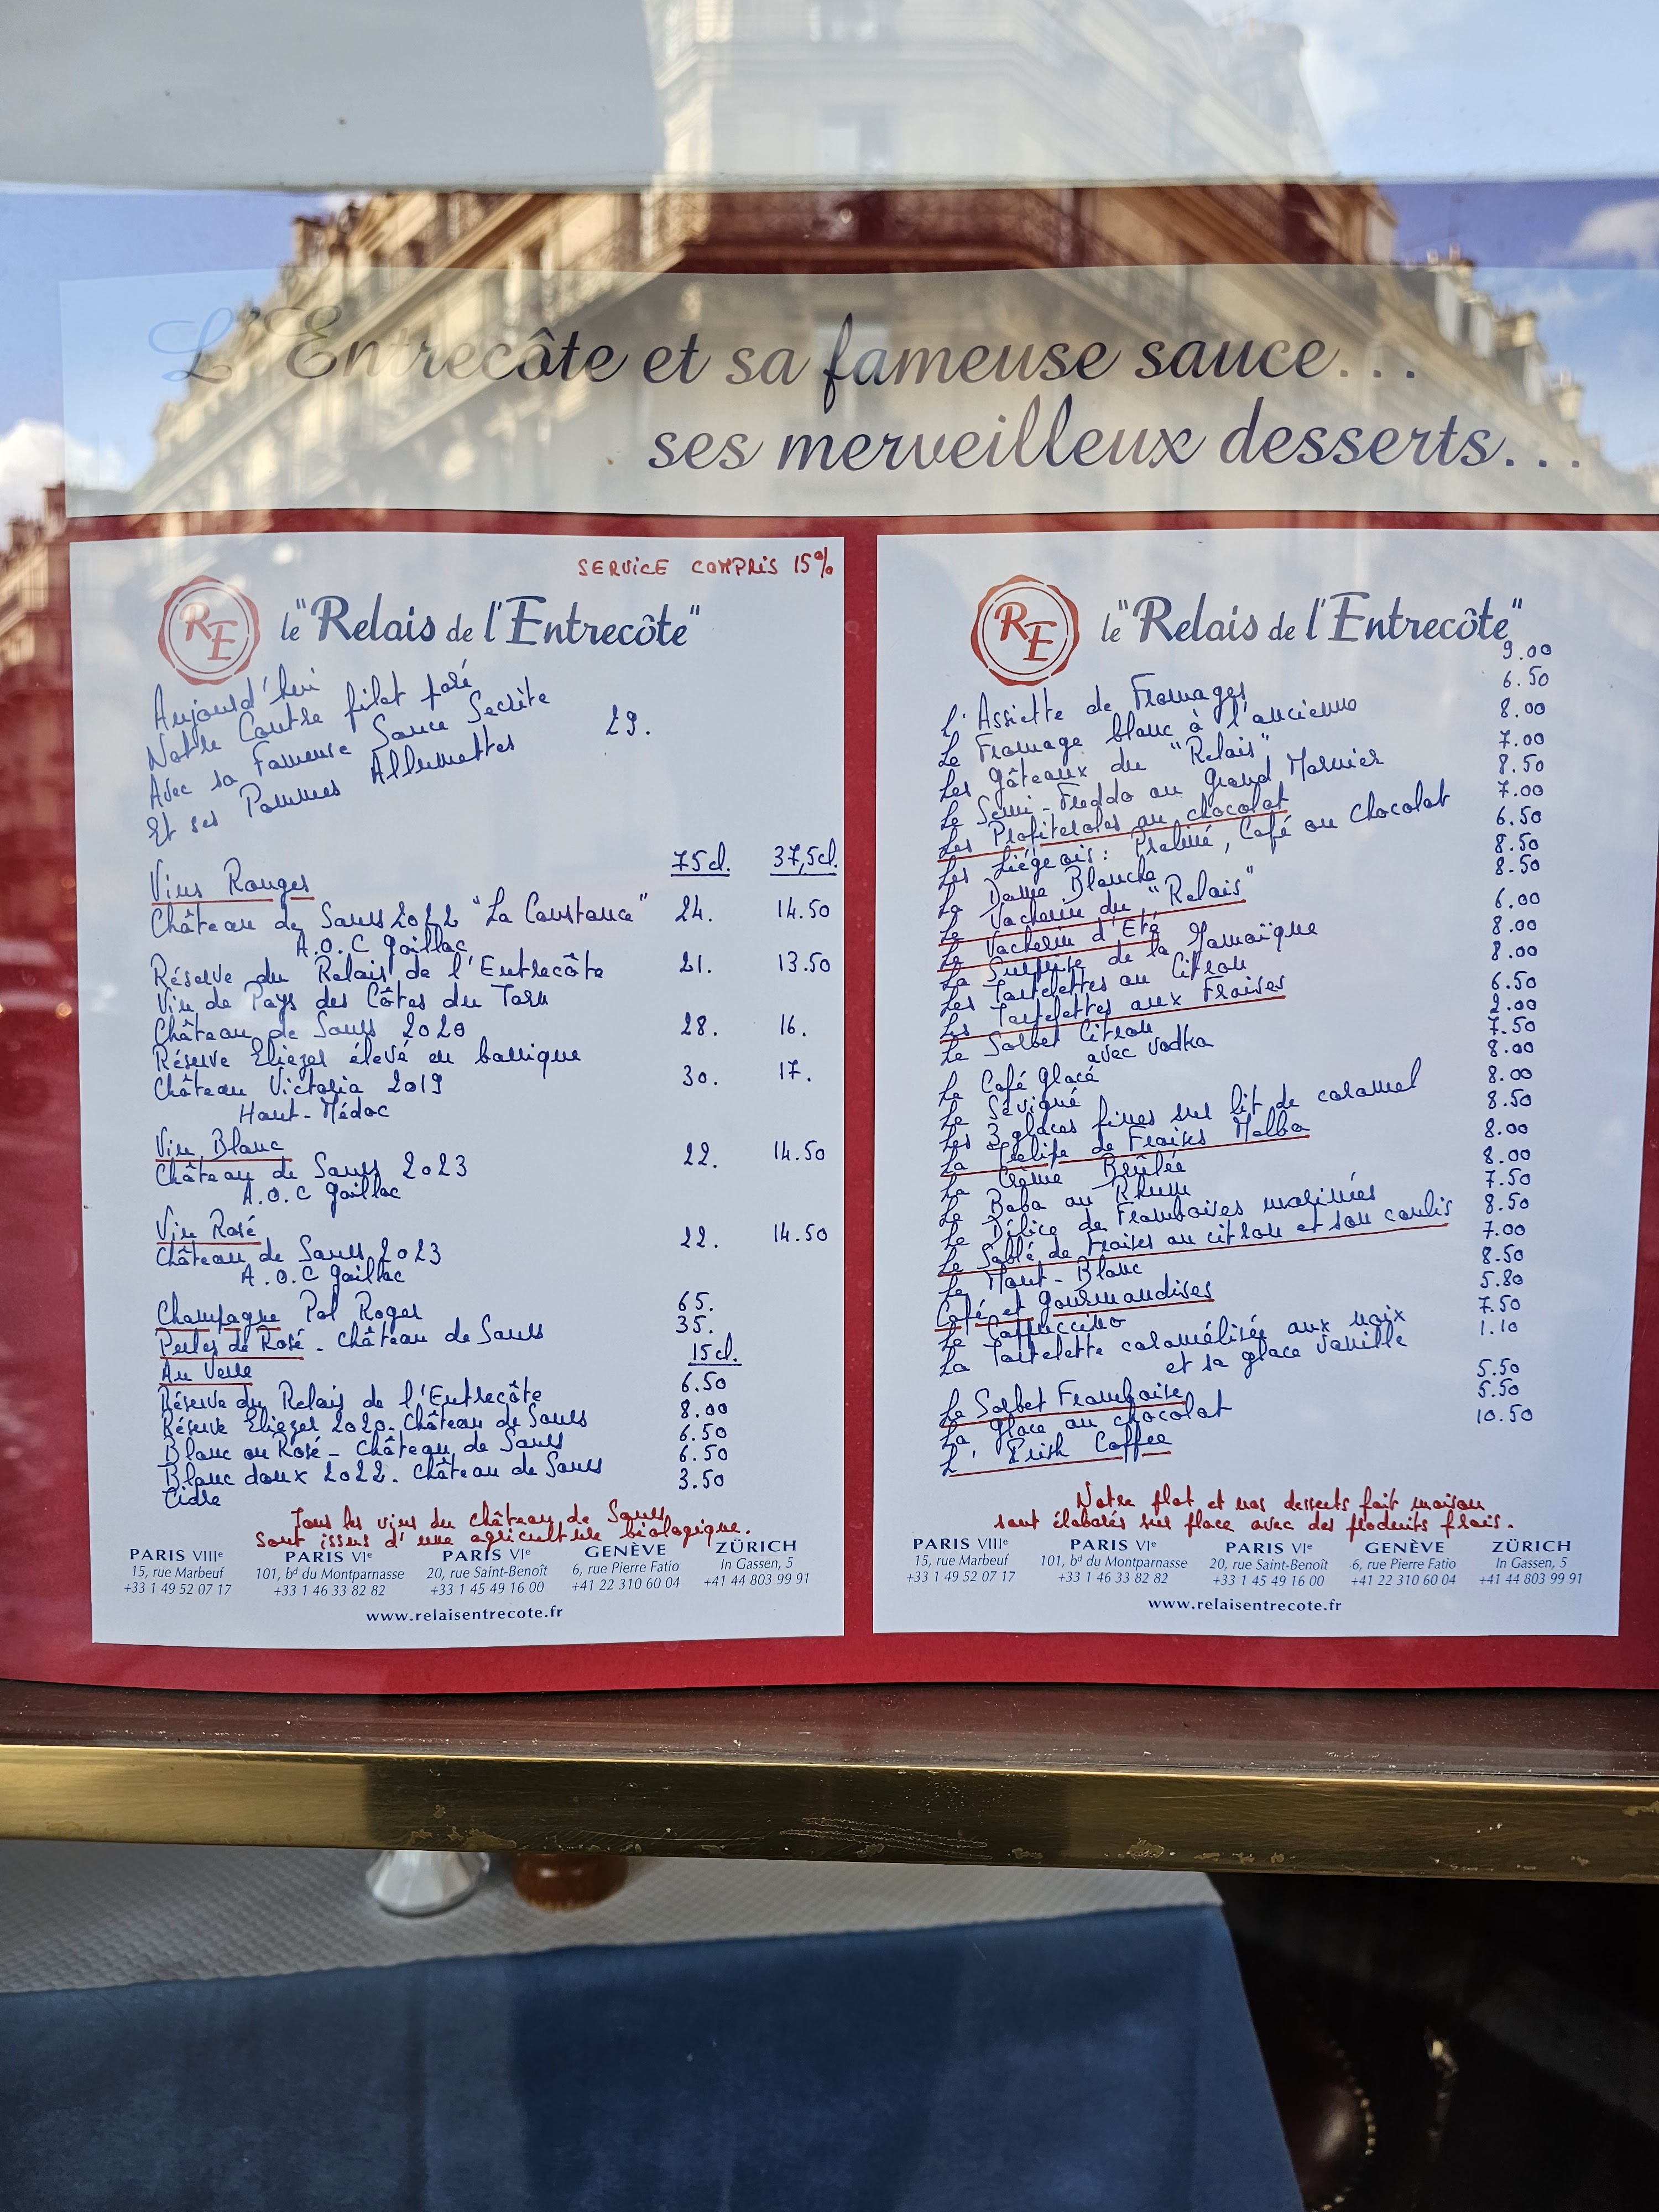 L'Entrecôte et sa fameuse sauce...
ses merveilleux desserts...
SERVICE COMPRIS 15%
RE
le "Relais de l'Entrecôte"
Aujourd'hui
Notre Contre filet paré
Avec sa Fameuse Sauce Secrète 29.
Et ses Pommes Allumettes
75cl. 37,5cl.
Vins Rouges
Château de Saurs 2022 "La Constance" 24. 14.50
A.O.C Gaillac
Réserve du Relais de l'Entrecôte 21. 13.50
Vin de Pays des Côtes du Tarn
Château de Saurs 2020 28. 16.
Réserve Eliezer élevé en barrique
Château Victoria 2019 30. 17.
Haut-Médoc
Vin Blanc
Château de Saurs 2023 22. 14.50
A.O.C Gaillac
Vin Rosé
Château de Saurs 2023 22. 14.50
A.O.C Gaillac
Champagne Pol Roger 65.
Perles de Rosé - Château de Saurs 35.
Au Verre 15cl.
Réserve du Relais de l'Entrecôte 6.50
Réserve Eliezer 2020. Château de Saurs 8.00
Blanc ou Rosé - Château de Saurs 6.50
Blanc doux 2022. Château de Saurs 6.50
Cidre 3.50
Tous les vins du château de Saurs
sont issus d'une agriculture biologique.
PARIS VIIIe
15, rue Marbeuf
+33 1 49 52 07 17
PARIS VIe
101, bd du Montparnasse
+33 1 46 33 82 82
PARIS VIe
20, rue Saint-Benoît
+33 1 45 49 16 00
GENÈVE
6, rue Pierre Fatio
+41 22 310 60 04
ZÜRICH
In Gassen, 5
+41 44 803 99 91
www.relaisentrecote.fr
RE
le "Relais de l'Entrecôte"
L'Assiette de Fromages 9.00
Le Fromage blanc à l'ancienne 6.50
Les Gâteaux du "Relais" 8.00
Le Semi-Freddo au Grand Marnier 7.00
Les Profiteroles au chocolat 8.50
Les Liégeois: Praliné, Café ou Chocolat 7.00
La Dame Blanche 6.50
Le Vacherin du "Relais" 8.50
Le Vacherin d'Eté 8.50
La Surprise de la Jamaïque 6.00
Les Tartelettes au Citron 8.00
Les Tartelettes aux Fraises 8.00
Le Sorbet Citron 6.50
avec vodka 2.00
Le Café Glacé 7.50
Le Sévigné 8.00
Les 3 glaces fines sur lit de caramel 8.00
La Tulipe de Fraises Melba 8.50
La Crème Brûlée 8.00
Le Baba au Rhum 8.00
Le Délice de Framboises marinées 7.50
Le Sablé de Fraises au citron et son coulis 8.50
Le Mont-Blanc 7.00
Café et Gourmandises 8.50
Le Cappuccino 5.80
La Tartelette caramélisée aux noix 7.50
et sa glace vanille 1.10
Le Sorbet Framboise 5.50
La Glace au chocolat 5.50
L'Irish Coffee 10.50
Notre plat et nos desserts fait maison
sont élaborés sur place avec des produits frais.
PARIS VIIIe
15, rue Marbeuf
+33 1 49 52 07 17
PARIS VIe
101, bd du Montparnasse
+33 1 46 33 82 82
PARIS VIe
20, rue Saint-Benoît
+33 1 45 49 16 00
GENÈVE
6, rue Pierre Fatio
+41 22 310 60 04
ZÜRICH
In Gassen, 5
+41 44 803 99 91
www.relaisentrecote.fr